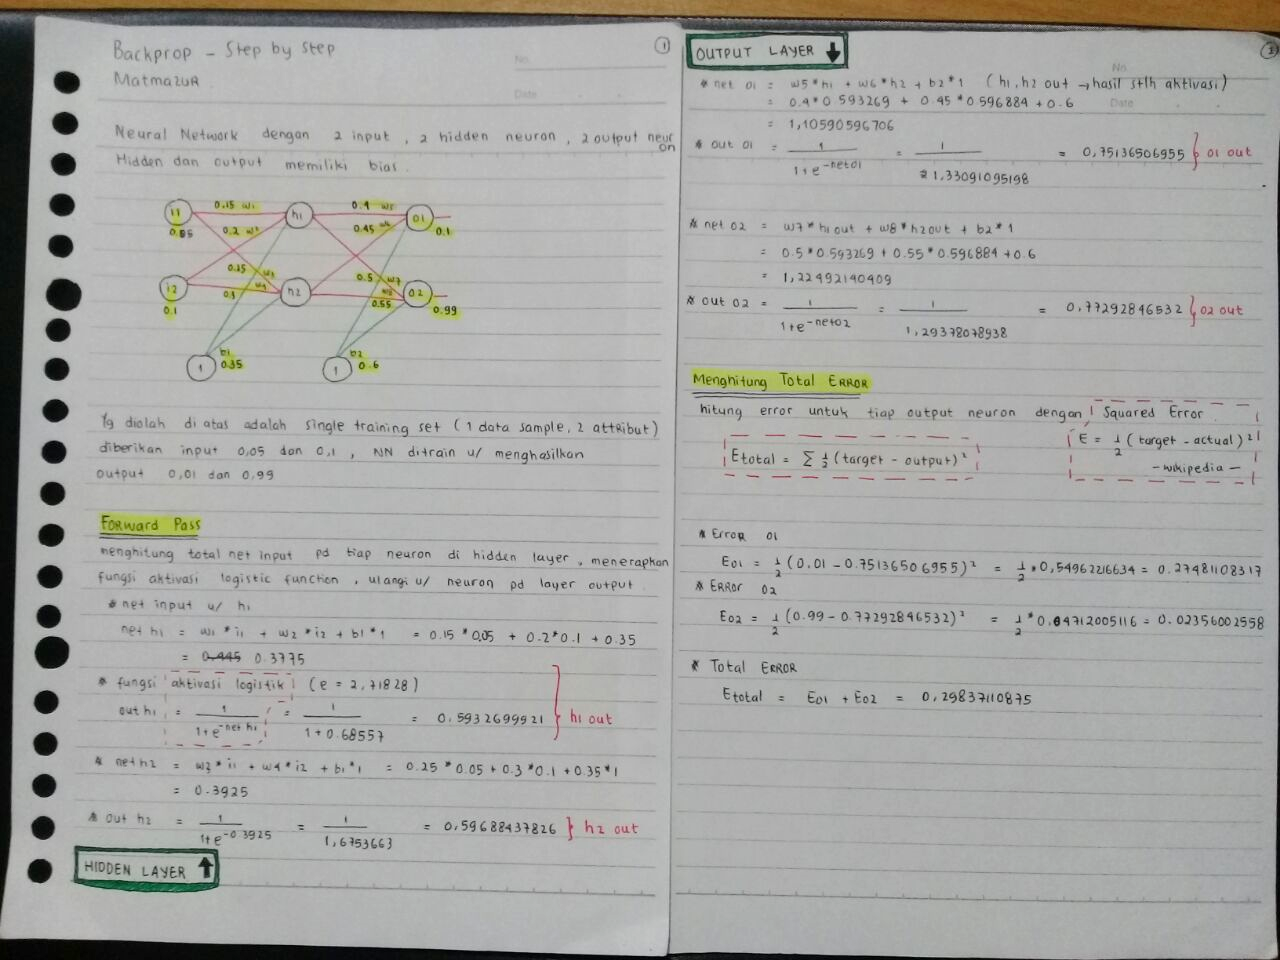 Backprop - Step by step
Matmazur
1
No.
Date
Neural Network dengan 2 input, 2 hidden neuron, 2 output neuron
Hidden dan output memiliki bias.
i1
0.05
0.15 w1
h1
0.4 w5
o1
0.1
0.2 w2
0.45 w6
0.25 w3
0.5 w7
i2
0.1
0.3 w4
h2
w8
0.55
o2
0.99
1
b1
0.35
1
b2
0.6
Yg diolah di atas adalah single training set (1 data sample, 2 attribut)
diberikan input 0,05 dan 0,1, NN ditrain u/ menghasilkan
output 0,01 dan 0,99
Forward Pass
menghitung total net input pd tiap neuron di hidden layer, menerapkan
fungsi aktivasi logistic function, ulangi u/ neuron pd layer output.
* net input u/ h1
net h1 = w1*i1 + w2*i2 + b1*1 = 0.15*0,05 + 0.2*0.1 + 0.35
= 0.445 0.3775
* fungsi aktivasi logistik (e = 2,71828)
out h1 = 1/(1+e^-net h1) = 1/(1+0.68557) = 0.5932699921 } h1 out
* net h2 = w3*i1 + w4*i2 + b1*1 = 0.25*0.05 + 0.3*0.1 + 0.35*1
= 0.3925
* out h2 = 1/(1+e^-0.3925) = 1/1,6753663 = 0,59688437826 } h2 out
HIDDEN LAYER ↑
OUTPUT LAYER ↓
2
No.
Date
* net o1 = w5*h1 + w6*h2 + b2*1 (h1, h2 out → hasil stlh aktivasi)
= 0.4*0.593269 + 0.45*0.596884 + 0.6
= 1,10590596706
* out o1 = 1/(1+e^-neto1) = 1/1.33091095198 = 0,75136506955 } o1 out
* net o2 = w7*h1out + w8*h2out + b2*1
= 0.5*0.593269 + 0.55*0.596884 + 0.6
= 1,22492140409
* out o2 = 1/(1+e^-neto2) = 1/1,29378078938 = 0,77292846532 } o2 out
Menghitung Total Error
hitung error untuk tiap output neuron dengan Squared Error
Etotal = Σ ½ (target - output)²
E = ½ (target - actual)²
- wikipedia -
* Error o1
Eo1 = ½ (0.01 - 0.75136506955)² = ½ * 0,54962216634 = 0.27481108317
* Error o2
Eo2 = ½ (0.99 - 0.77292846532)² = ½ * 0.04712005116 = 0.02356002558
* Total Error
Etotal = Eo1 + Eo2 = 0,29837110875